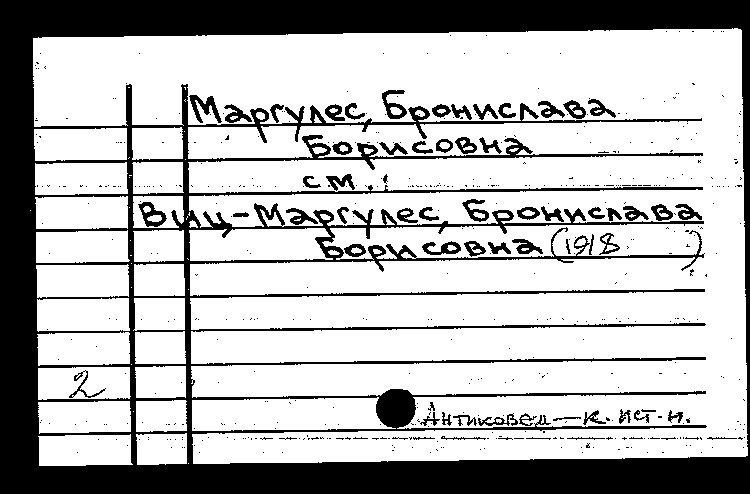 Маргулес, Бронислава
Борисовна
см.:
Виц-Маргулес, Бронислава
Борисовна (1918 )
2
Антиковед — к. ист. н.